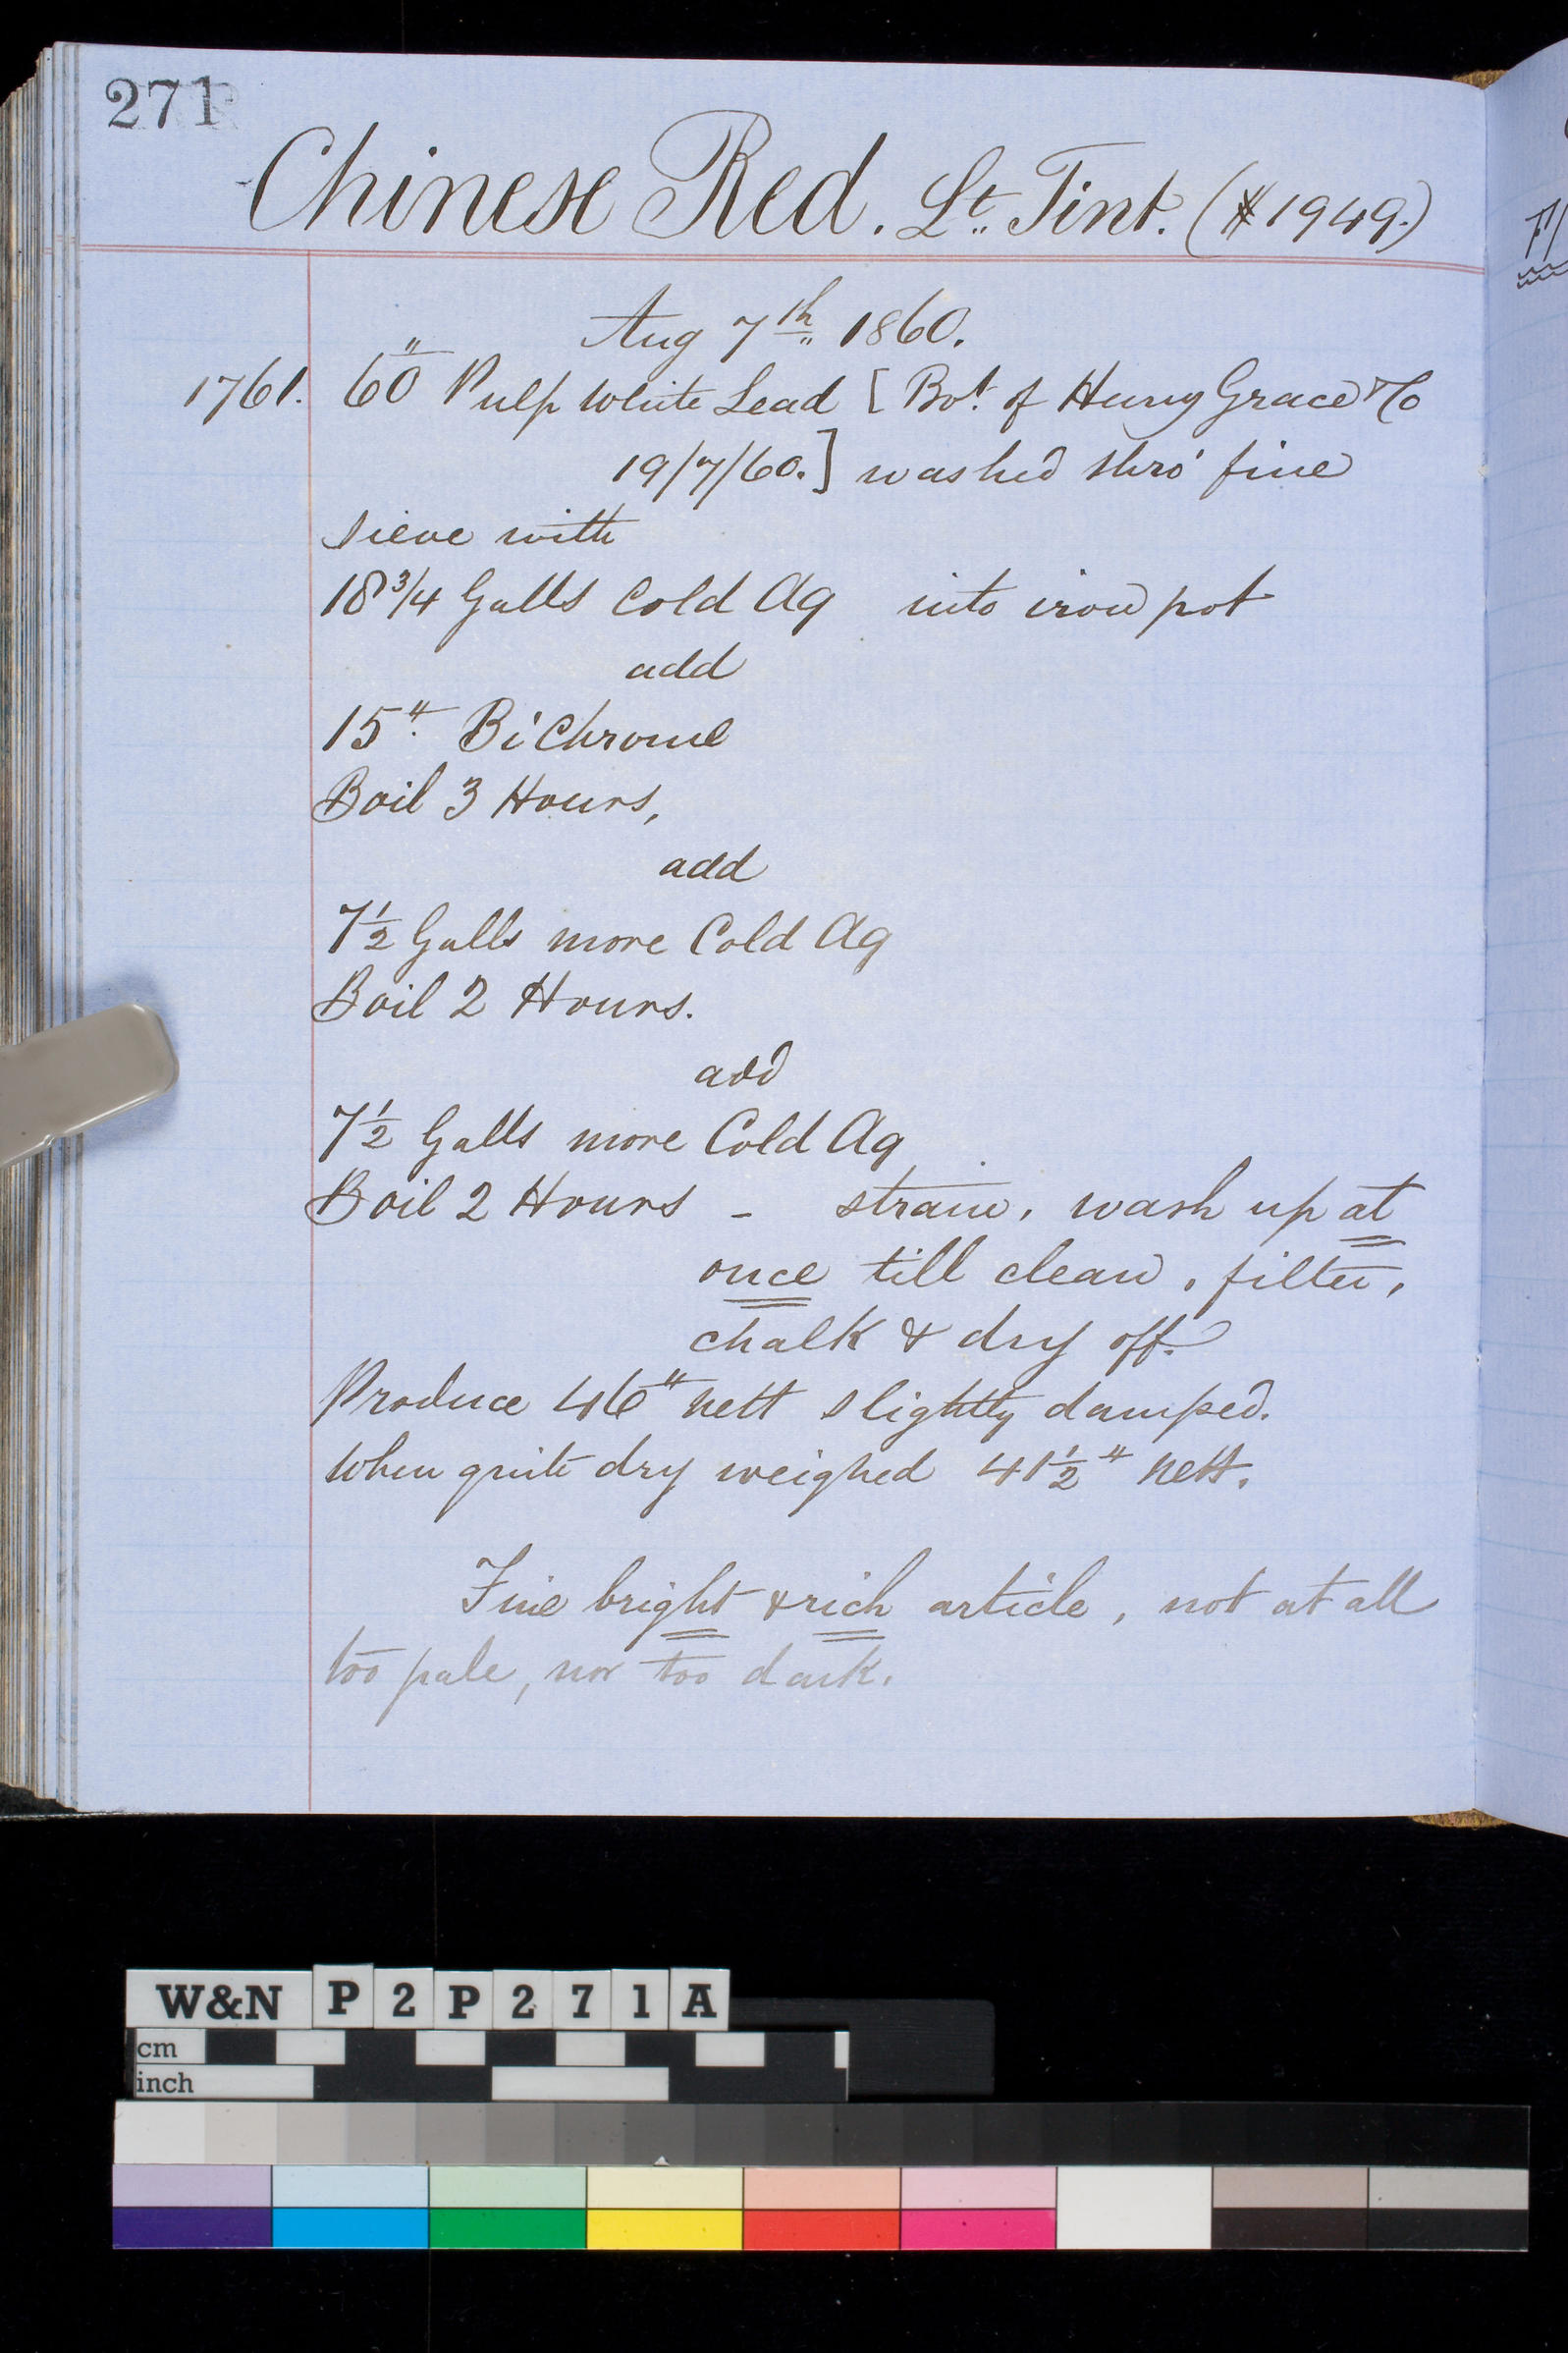 271
Chinese Red. Lt. Tint. (# 1949.)
Aug 7th 1860.
1761. 60" Pulp White Lead [Bot. of Henry Grace & Co
19/7/60.] washed thro' fine
sieve with
18 3/4 Galls Cold Aq into iron pot
add
15" BiChrome
Boil 3 Hours,
add
7 1/2 Galls more Cold Aq
Boil 2 Hours.
add
7 1/2 Galls more Cold Aq
Boil 2 Hours - strain, wash up at
once till clean, filter,
chalk & dry off.
Produce 46" nett slightly damped.
When quite dry weighed 41 1/2" nett.
Fine bright & rich article, not at all
too pale, nor too dark.
W&N P2P271A
cm
inch